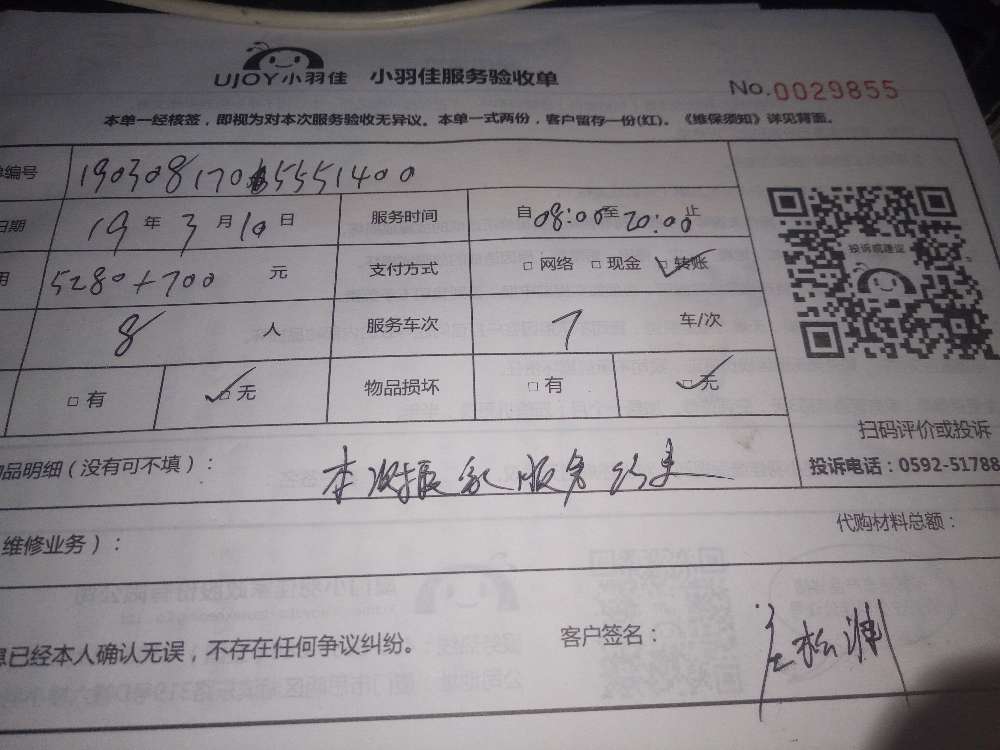 UJOY小羽佳 小羽佳服务验收单
No.0029855
本单一经核签，即视为对本次服务验收无异议。本单一式两份，客户留存一份(红)。《维保须知》详见背面。
编号 190308170 5551400
日期 19 年 3 月 10 日 服务时间 自08:00至20:00止
用 5280+700 元 支付方式 □网络 □现金 ☑转账
8 人 服务车次 7 车/次
□有 ☑无 物品损坏 □有 ☑无
投诉或建议
扫码评价或投诉
投诉电话：0592-51788
品明细（没有可不填）： 本次搬家服务结束
维修业务）：
代购材料总额：
已经本人确认无误，不存在任何争议纠纷。
客户签名：